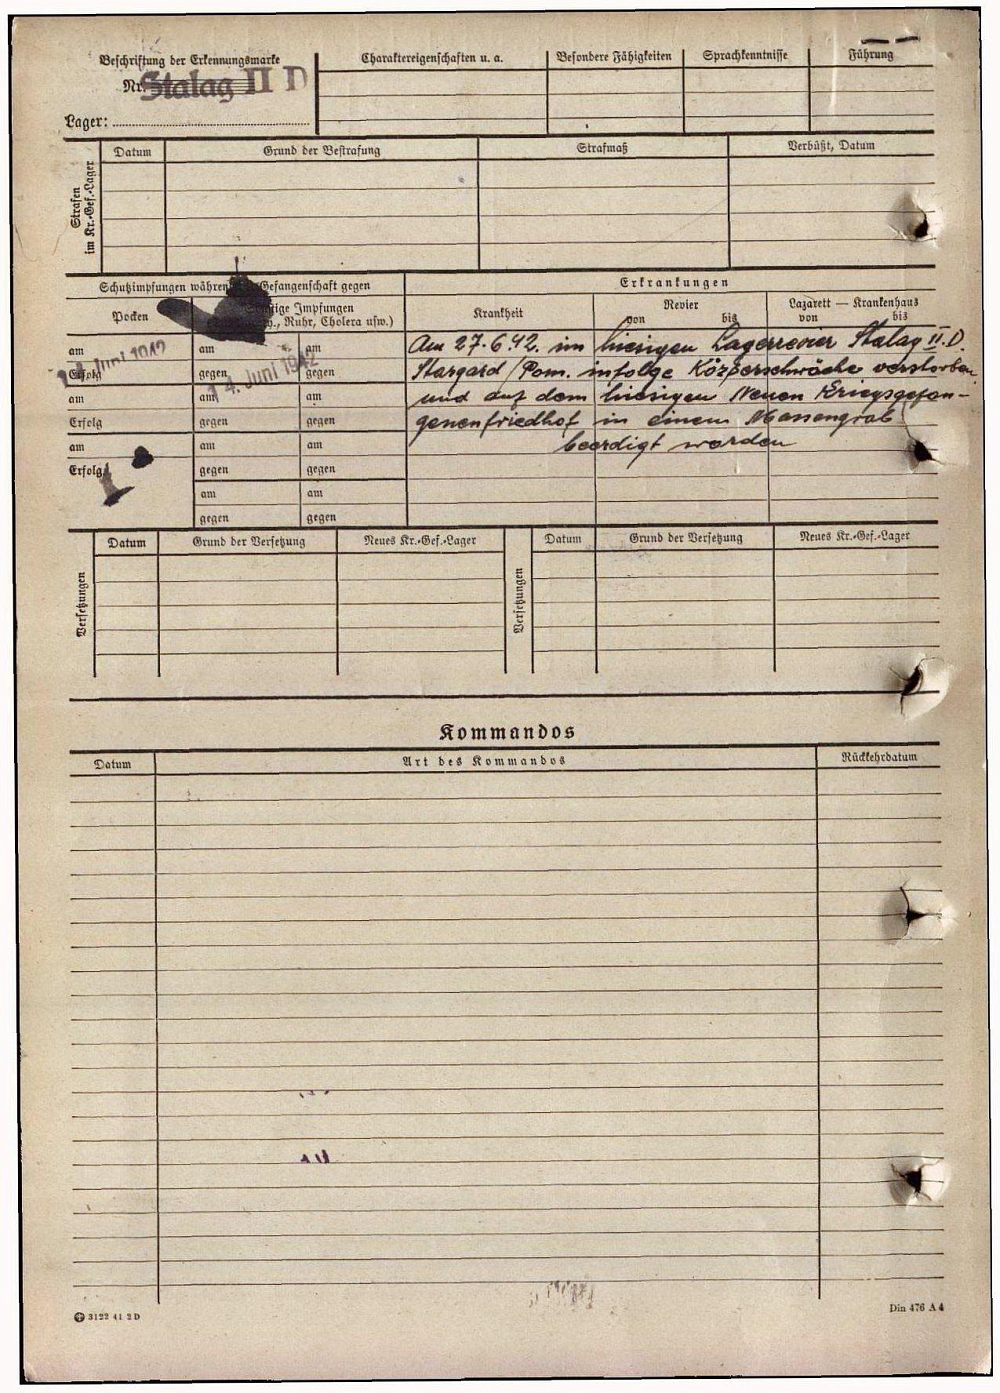 Beschriftung der Erkennungsmarke
Nr. Stalag II D
Lager:
Charaktereigenschaften u. a.
Besondere Fähigkeiten
Sprachkenntnisse
Führung
Strafen im Kr.-Gef.-Lager
Datum
Grund der Bestrafung
Strafmaß
Verbüßt, Datum
Schutzimpfungen während Gefangenschaft gegen
Erkrankungen
Pocken
Impfungen
Ruhr, Cholera usw.)
Krankheit
Revier
von bis
Lazarett — Krankenhaus
von bis
am am am
Erfolg gegen gegen
Juni 1942
14. Juni 1942
am am am
Erfolg gegen gegen
am am am
Erfolg gegen gegen
am am
gegen gegen
Am 27.6.42. im hiesigen Lagerrevier Stalag II.D.
Stargard/Pom. infolge Körperschwäche verstorben
und auf dem hiesigen Neuen Kriegsgefan-
genenfriedhof in einem Massengrab
beerdigt worden
Versetzungen
Datum
Grund der Versetzung
Neues Kr.-Gef.-Lager
Versetzungen
Datum
Grund der Versetzung
Neues Kr.-Gef.-Lager
Kommandos
Datum
Art des Kommandos
Rückkehrdatum
3122 41 2 D
Din 476 A 4